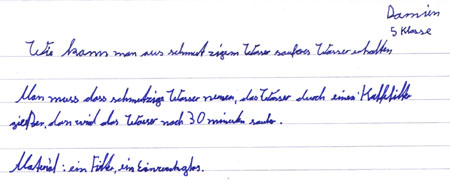 Damien
5 Klasse
Wie kann man aus schmutzigem Wasser sauberes Wasser erhalten
Man muss dass schmutzige Wasser nemen, das Wasser durch eines Kaffefilter
gießen, dan wird das Wasser nach 30 minuten sauber.
Material: ein Filter, ein Einmachglas.